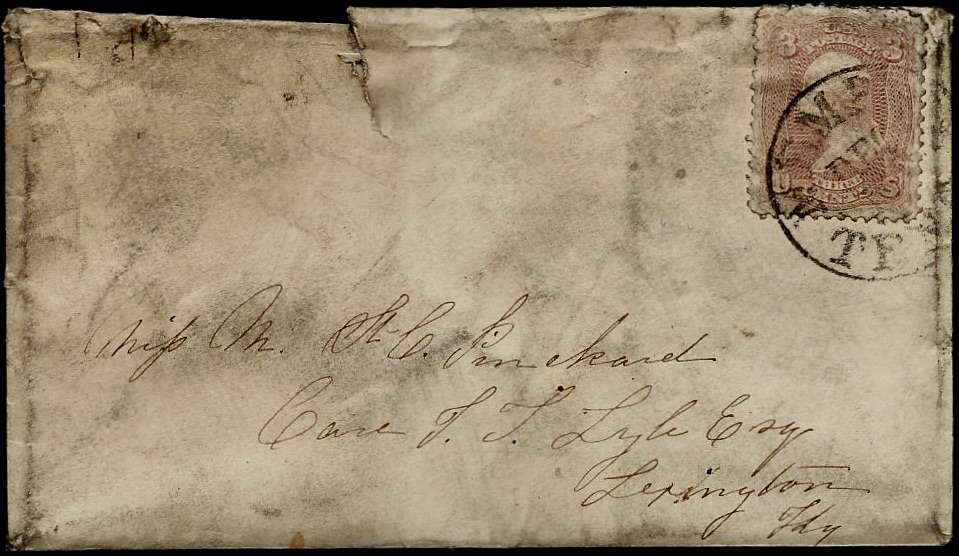 3 3
U S
MEMP
TE
Miss M. St. C. Pinckard
Care
Lyle Esqr
Lexington
Ky